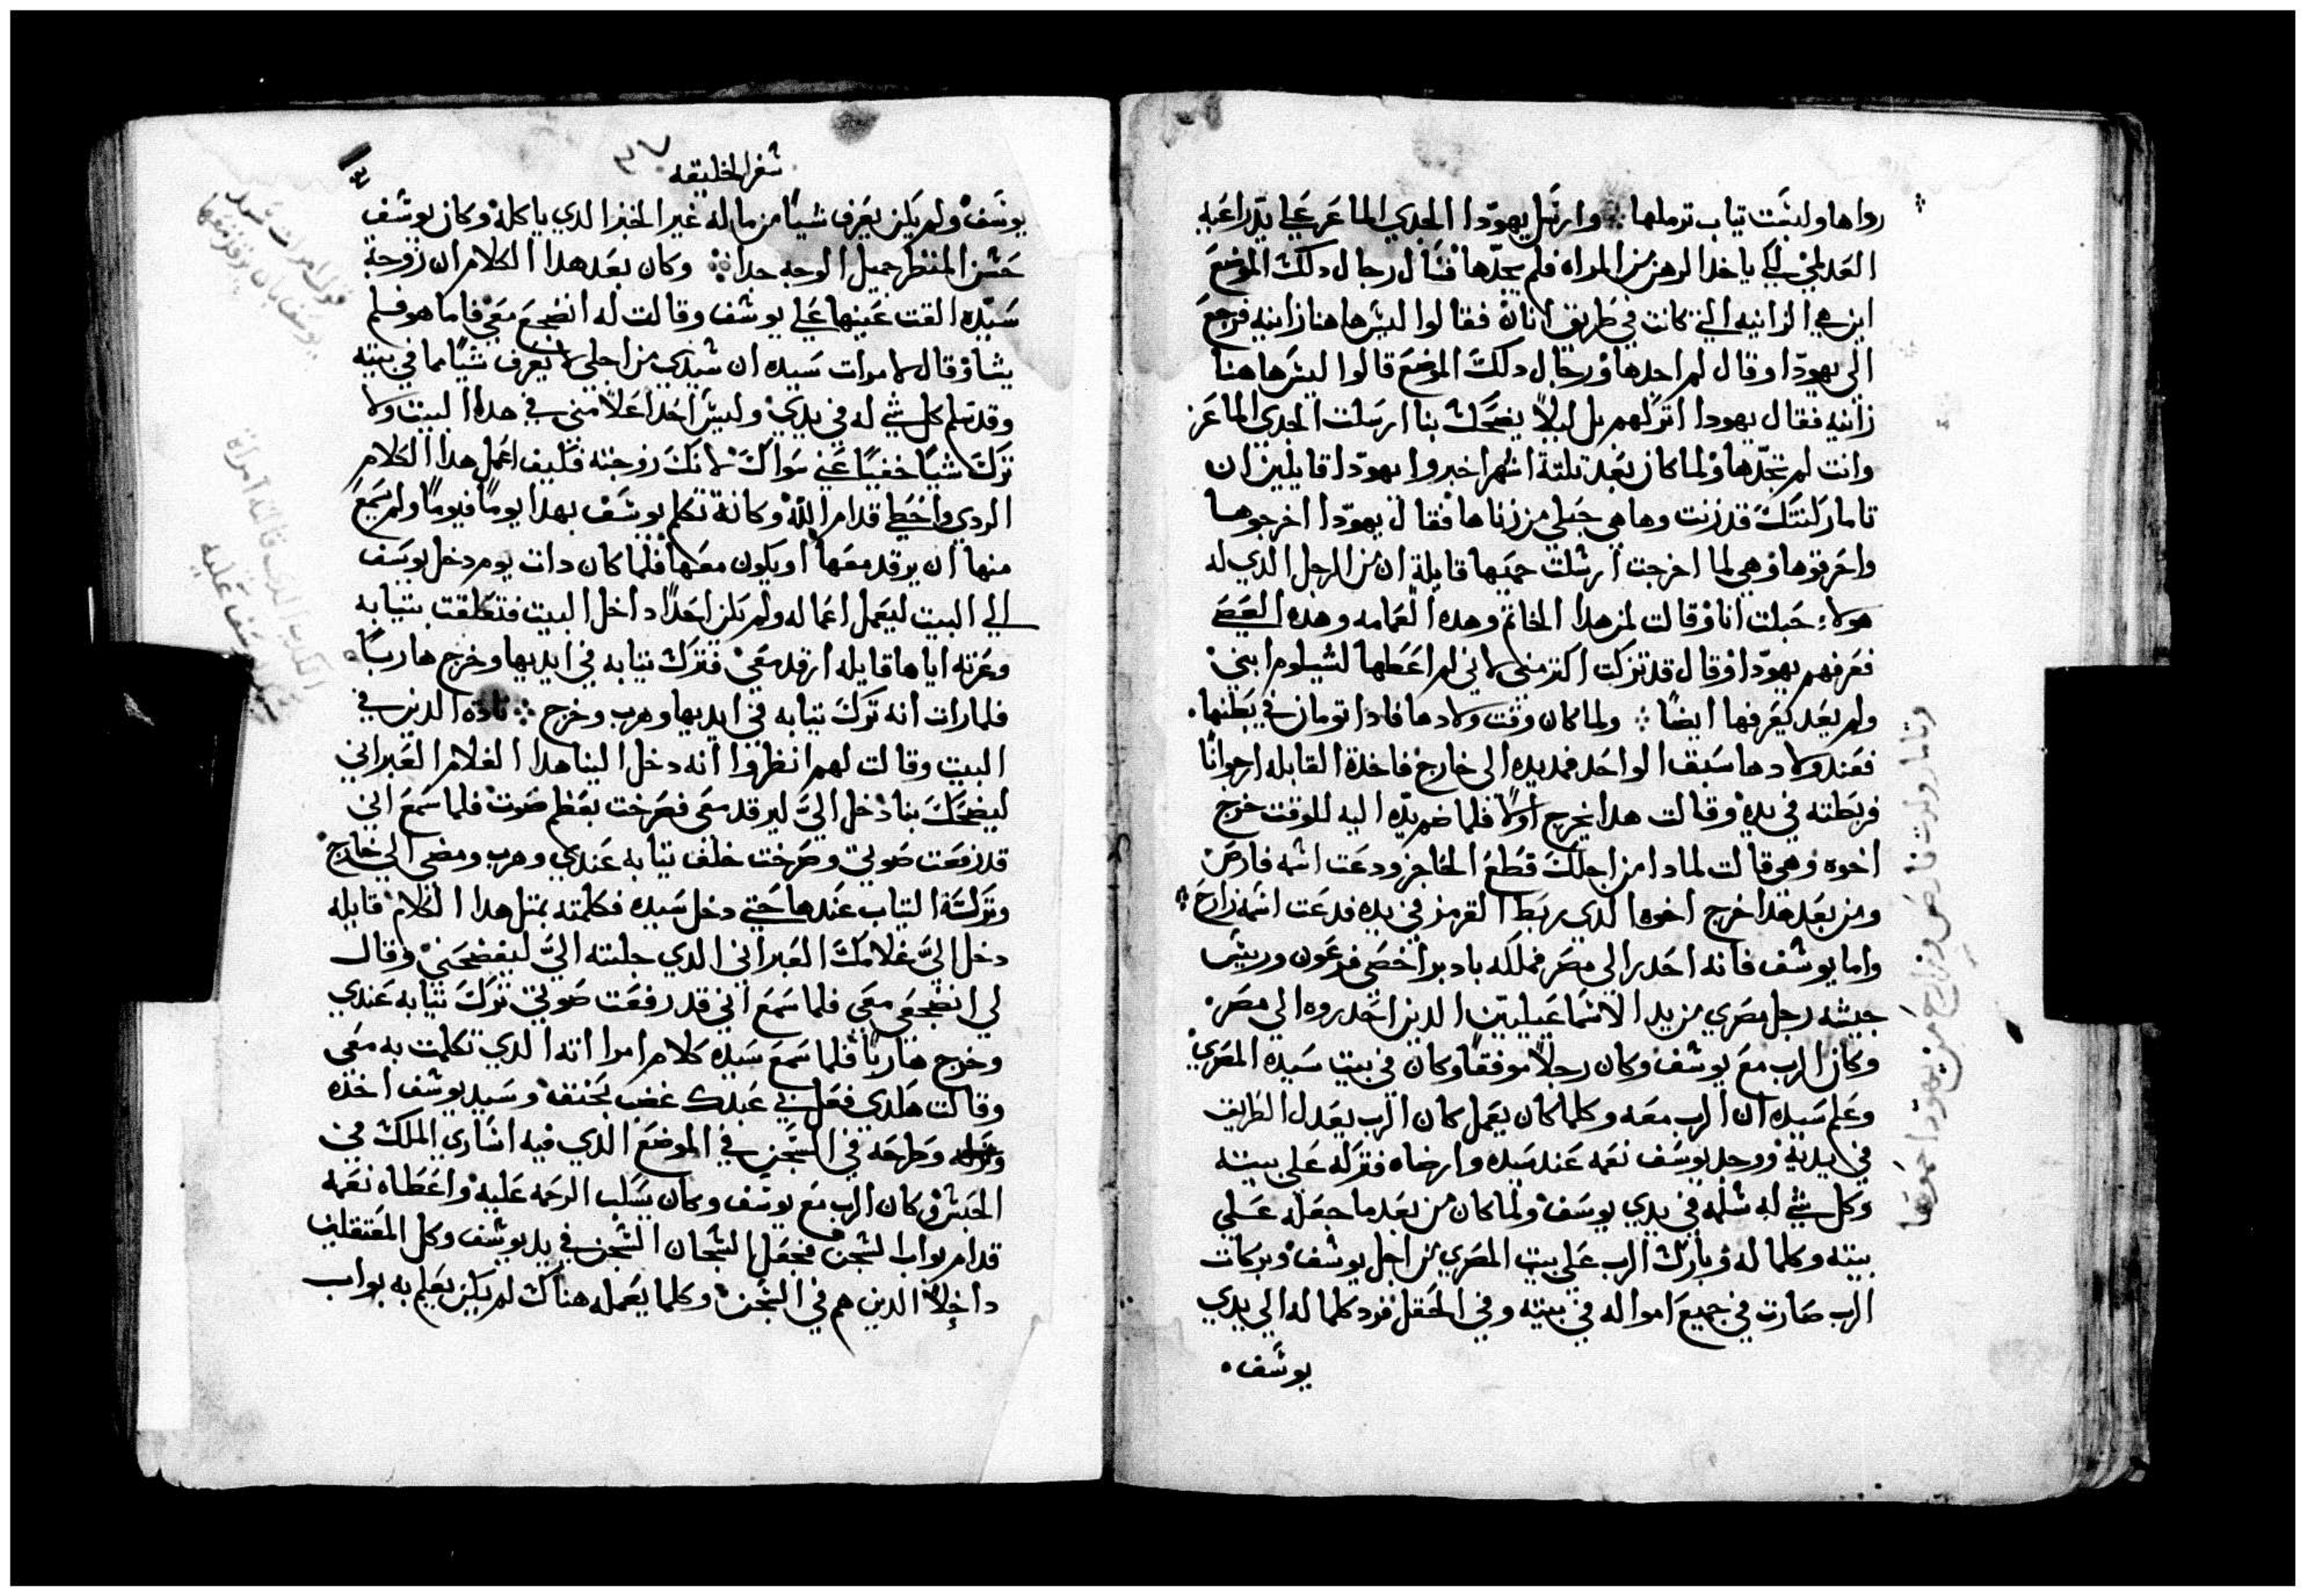 رداها ولبست تياب ترملها ⁘ وارسل يهودا الجدي الماعز على يد راعيه
العدلمي لكي ياخد الرهن من المراه فلم يجدها فسال رجال دلك الموضع
اين هي الزانيه التي كانت في طريق انان فقالوا ليس هاهنا زانيه فرجع
الى يهودا وقال لم اجدها ورجال دلك الموضع قالوا ليس هاهنا
زانيه فقال يهودا اتركهم بل ليلا يضحك بنا ارسلت الجدي الماعز
وانت لم تجدها ولما كان بعد تلتة اشهر اخبروا يهودا قايلين ان
تامار كنتك قد زنت وها هي حبلى من زناها فقال يهودا اخرجوها
واحرقوها وهي لما اخرجت ارسلت حميها قايلة ان من الرجل الدي له
هولاء حبلت انا وقالت لمن هدا الخاتم وهده العمامه وهده العصى
فعرفهم يهودا وقال قد تزكت اكتر مني لاني لم اعطها لشيلوم ابني
ولم يعد يعرفها ايضا ⁘ ولما كان وقت ولادها فادا تومان في بطنها
فعند ولادها سبق الواحد فمد يده الى خارج فاخدة القابله ارجوانا
فربطته في يده وقالت هدا يخرج اولا فلما ضم يده اليه للوقت خرج
اخوه وهي قالت لمادا من اجلك قطع الحاجز ودعت اسمه فارص
ومن بعد هدا خرج اخوه الدي ربط القرمز في يده فدعت اسمه زارح
واما يوسف فانه احدر الي مصر فملكه بادبرا خصي فرعون ورييس
جيشه رجل مصري من يد الاسماعيليين الدين احدروه الي مصر
وكان الرب مع يوسف وكان رجلا موفقا وكان في بيت سيده المصري
وعلم سيده ان الرب معه وكلما كان يعمل كان الرب يعدل الطريق
في يديه ووجد يوسف نعمه عند سيده وارضاه فتركه على بيته
وكل شي له سلمه في يدي يوسف ولما كان من بعد ما جعله علي
بيته وكلما له وبارك الرب على بيت المصري من اجل يوسف وبركات
الرب صارت في جميع امواله في بيته وفي الحقل فرد كلما له الي يدي
يوسف
وتامار ولدت فارص وزارح من يهودا حموها
سفر الخليقه
يوسف ولم يكن يعرف شيا من ماله غير الخبز الدي ياكله وكان يوسف
حسن المنظر جميل الوجه جدا ⁘ وكان بعد هدا الكلام ان زوجة
سيده القت عينها علي يوسف وقالت له انضجع معي فاما هو فلم
يشا وقال لامرات سيده ان سيدي من اجلي لا يعرف شيا مما في بيته
وقد سلم كل شي له في يدي وليس احدا اعلا مني في هدا البيت ولا
ترك شيا خفيا عني سواك لانك زوجته فكيف اعمل هدا الكلام
الردي واخطي قدام الله وكانة تكلم يوسف بهدا يوما فيوما ولم يسمع
منها ان يرقد معها او يكون معها فلما كان دات يوم دخل يوسف
الي البيت ليعمل اعماله ولم يكن احدا داخل البيت فتعلقت بتيابه
وعرته اياها قايله ارقد معي فترك تيابه في ايديها وخرج هاربا
فلما رات انه ترك تيابه في ايديها وهرب وخرج ⁘ نادة الدين في
البيت وقالت لهم انظروا انه دخل الينا هدا الغلام العبراني
ليضحك بنا دخل الي ليرقد معي فصرخت بعظم صوت فلما سمع اني
قد رفعت صوتي وصرخت خلف تيابه عندي وهرب ومضى الي خارج
وتركة التياب عندها حتي دخل سيده فكلمته بمتل هدا الكلام قايله
دخل الي غلامك العبراني الدي جلبته الي ليفضحني وقال
لي انضجعي معي فلما سمع اني قد رفعت صوتي ترك تيابه عندي
وخرج هاربا فلما سمع سيده كلام امراته الدي تكلمت به معي
وقالت هكدي فعل بي عبدك غضب بحنق وسيد يوسف اخذه
وطرحه في السجن في الموضع الدي فيه اساري الملك في
الحبس وكان الرب مع يوسف وكان يسكب الرحمه عليه واعطاه نعمه
قدام بواب السجن فجعل السجان السجن في يد يوسف وكل المعتقلين
داخلا الدين هم في السجن وكلما يعمله هناك لم يكن يعلم به بواب
قول امرات سيد
يوسف بان يرقد معها
الكدب الدي قالته امراة